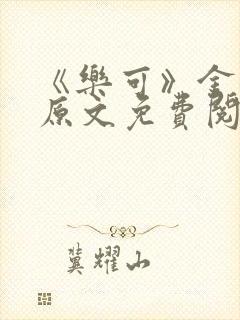 《樂可》金
原文免費閱
冀耀山